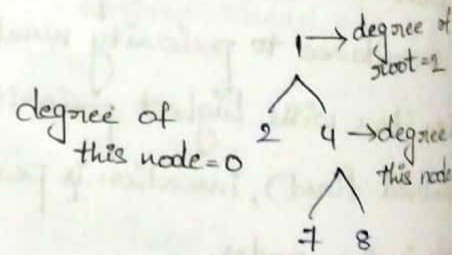 1 → degree of
root=2
degree of
this node=0
2 4 → degree
this node
7 8